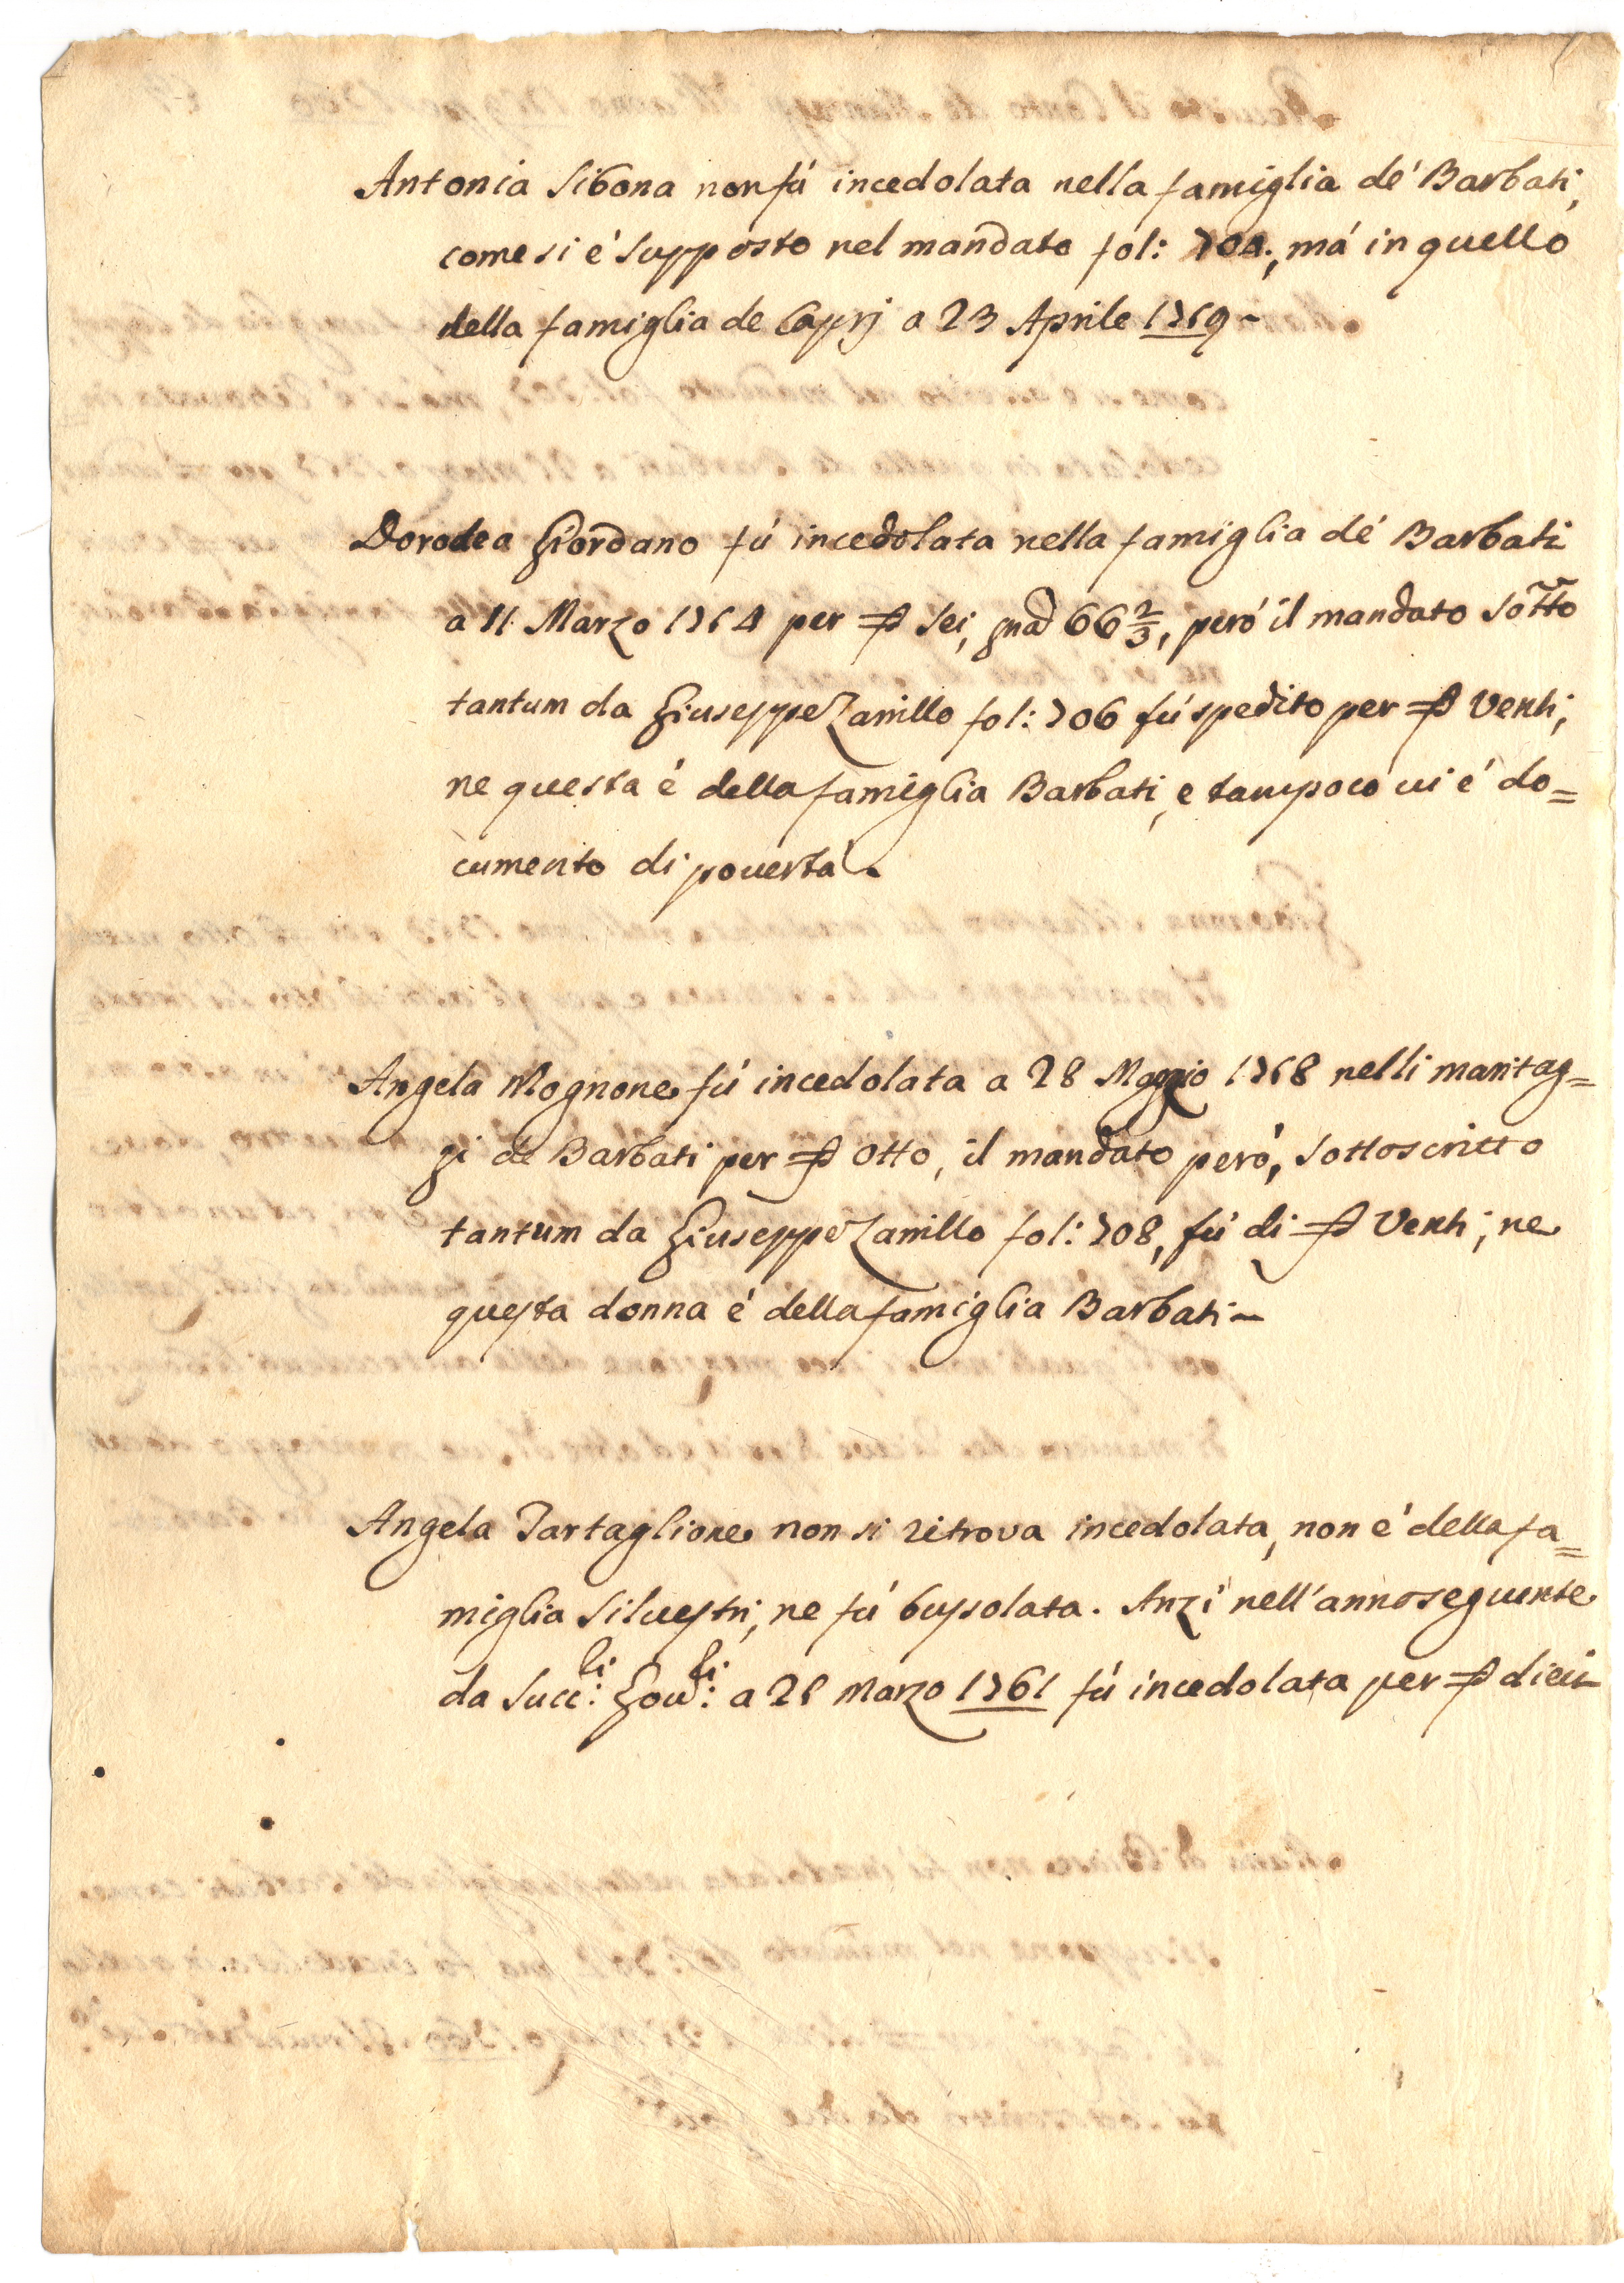 Antonia Sibona non fú incedolata nella famiglia de' Barbati,
come si é supposto nel mandato fol: 704., má in quello
della famiglia de Caprj a 23 Aprile 1769 -
Dorodea Giordano fú incedolata nella famiglia de' Barbati
a 11 Marzo 1764 per sei, 66 2/3, peró il mandato sotto
tantum da Giuseppe Zarrillo fol: 706 fú spedito per Venti;
ne questa é della famiglia Barbati, e tampoco ui é do=
cumento di pouertá.
Angela Mognone fú incedolata a 28 Maggio 1768 nelli maritag=
gi de Barbati per otto, il mandato peró, sottoscritto
tantum da Giuseppe Zarrillo fol: 708, fú di Venti; ne
questa donna é della famiglia Barbati -
Angela Tartaglione non si ritroua incedolata, non é della fa=
miglia Siluestri, ne fú bussolata. Anzi nell'anno seguente
da Succ:ri Gou:ri a 21 Marzo 1761 fú incedolata per dieci